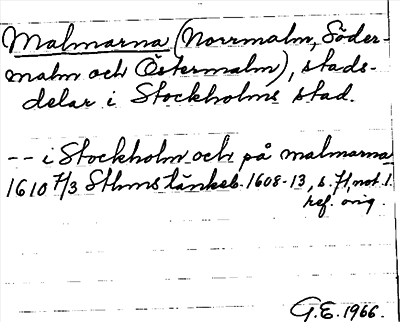 Malmarna (Norrmalm, Söder-
malm och Östermalm), stads-
delar i Stockholms stad.
-- i Stockholm och på malmarna
1610 7/3 Sthms tänkeb. 1608-13, s. 71, not. 1.
ref. orig.
G.E. 1966.